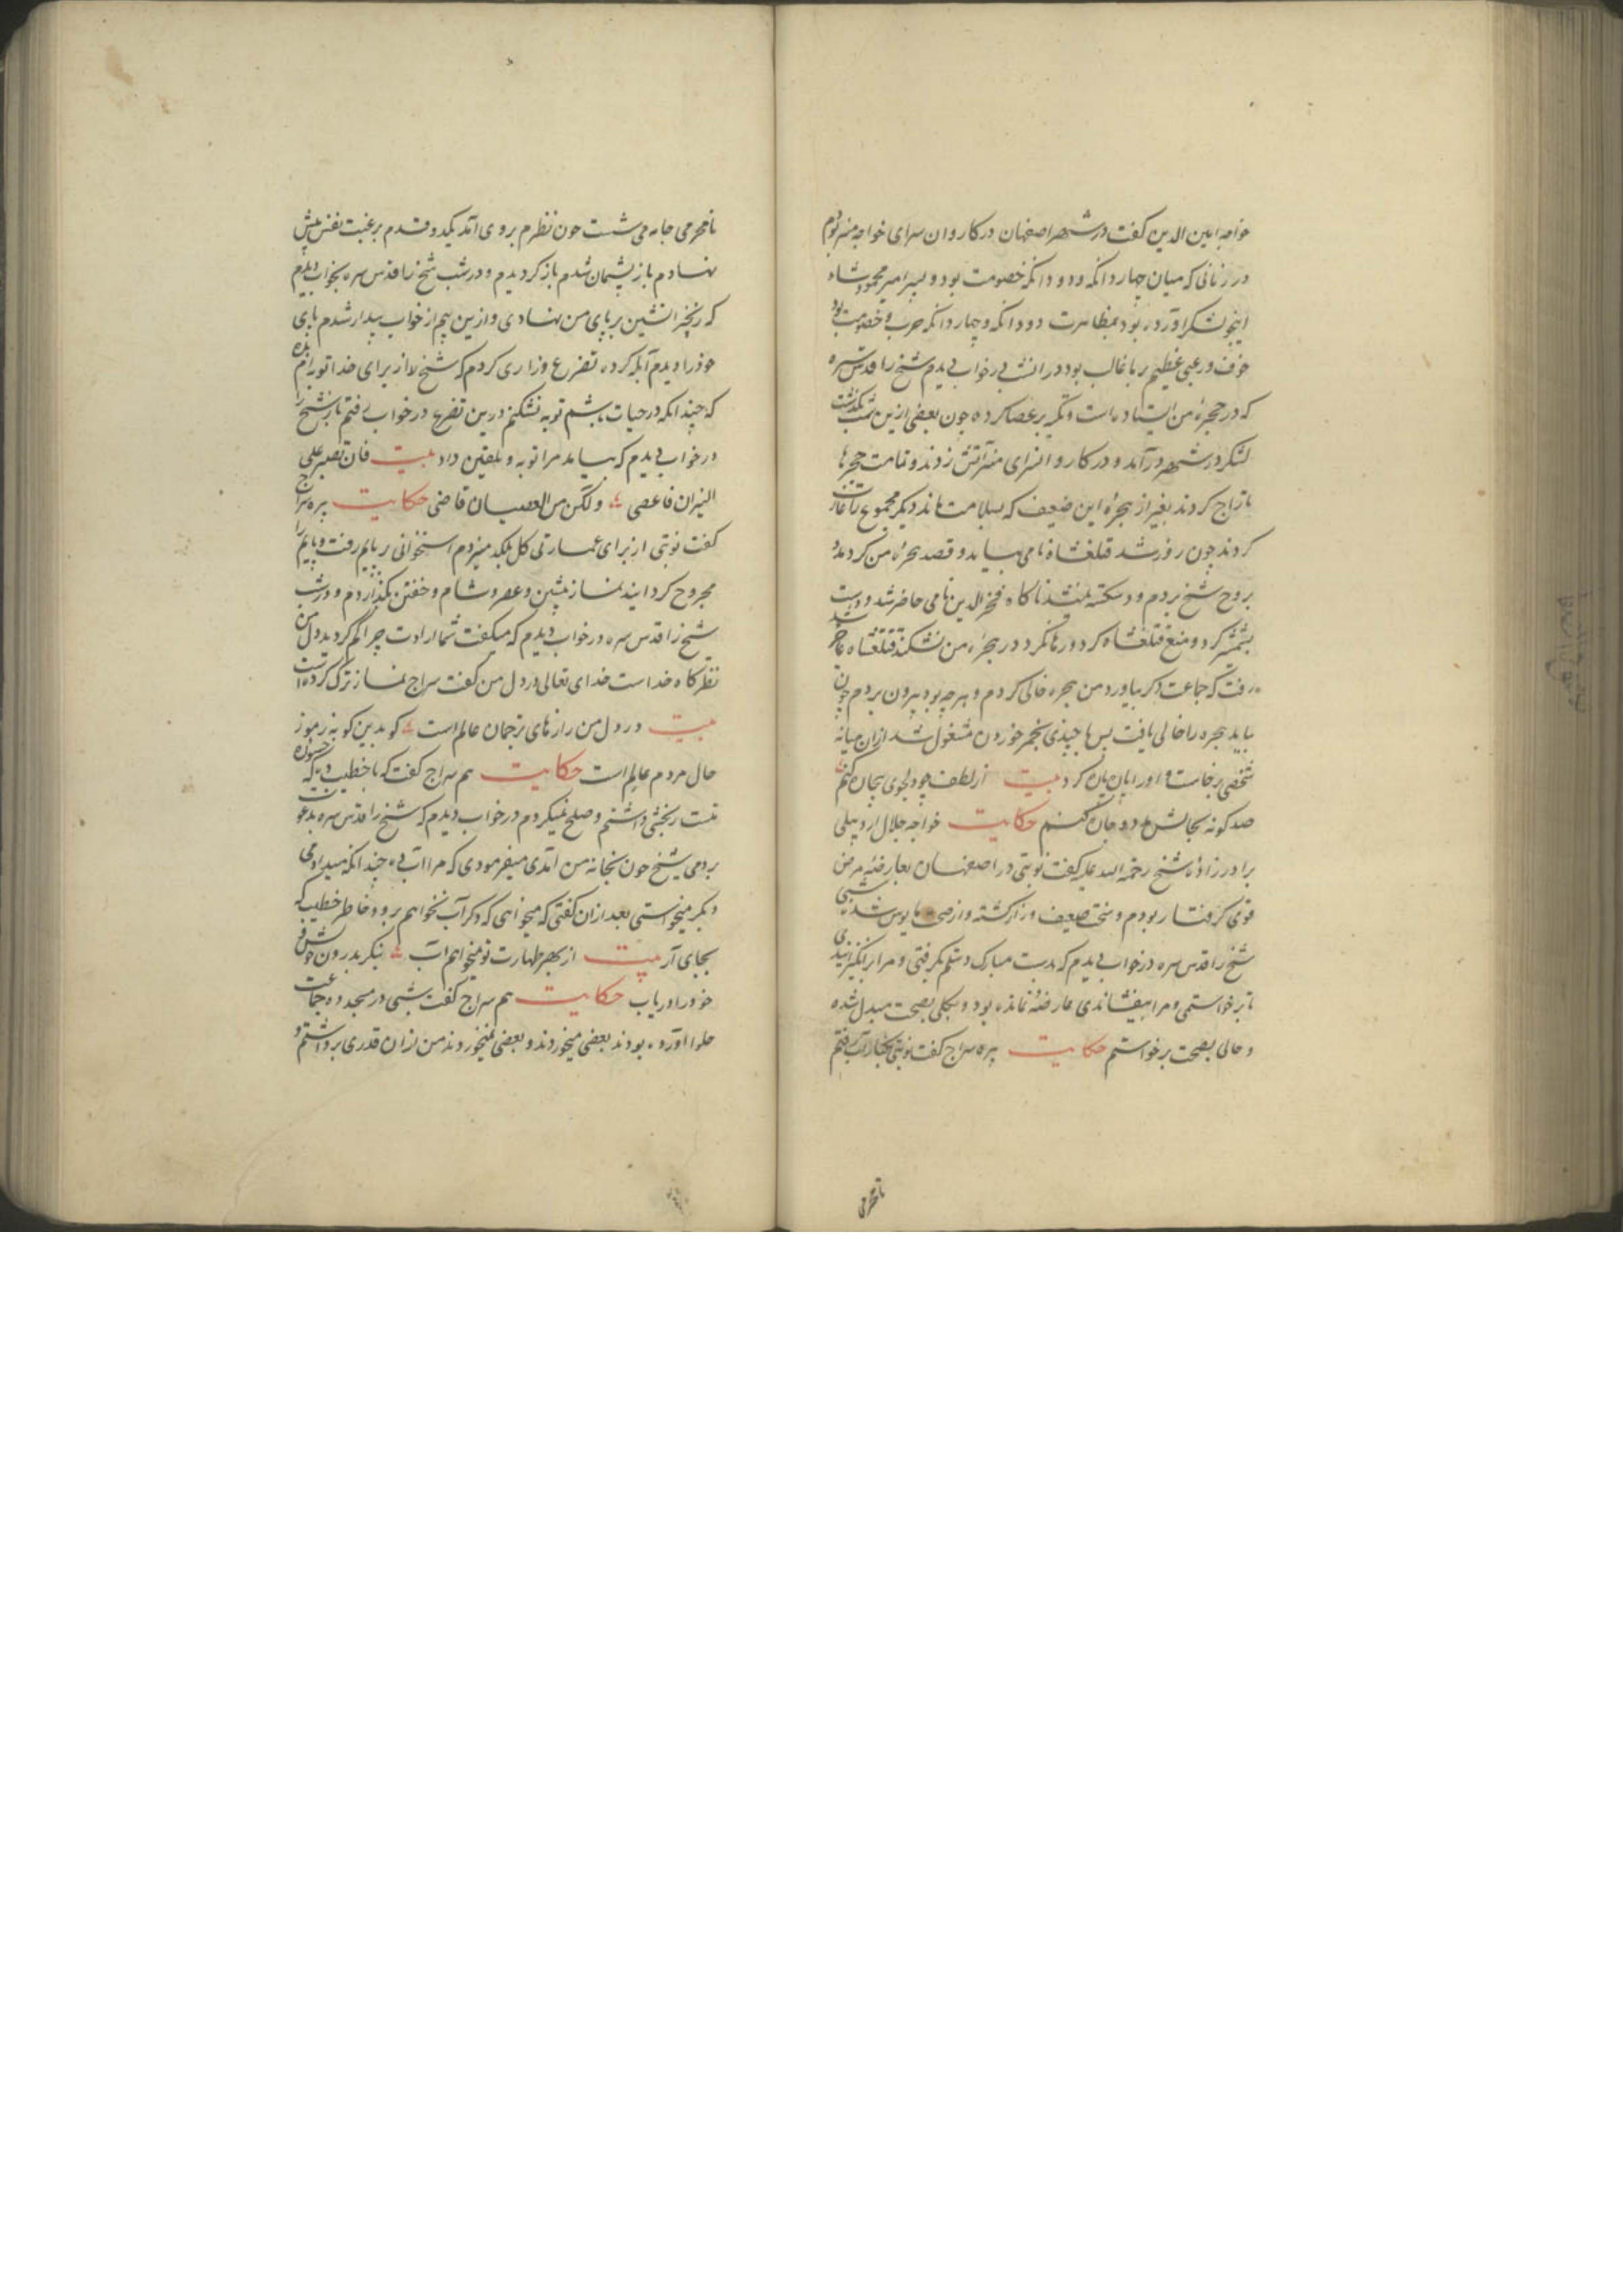 خواجه امین الدین کفت در شهر اصفهان در کاروان سرای خواجه میر بودم
در زمانی که میان چهار دانکه و دو دانکه خصومت بود و پسر امیر محمود شاه
اینجو لشکر آورده بود بمظاهرت دو دانکه و چهار دانکه حرب و خصومت بود
خوف و رعبی عظیم بر ما غالب بود در ان شب در خواب دیدم شیخ را قدس سره
که در حجرهٔ من ایستاده است و تکیه بر عصا کرده چون بعضی ازین شب بگذشت
لشکر در شهر درآمد و در کاروانسرای میر آتش زدند و تمامت حجرها
تاراج کردند بغیر از حجره این ضعیف که بسلامت ماند دیکر مجموع را غارت
کردند چون روز شد قتلغشاه نامی بیامد و قصد حجرهٔ من کرد مدد
بروح شیخ بردم و دسکته ناکاه فخر الدین نامی حاضر شد و دست
بشمشیر کرد و منع قتلغشاه کرد و رها نکرد در حجرهٔ من نشکند قتلغشاه عاجز شد
برفت که جماعت دکر بیاورد من حجره خالی کردم و هر چه بود بیرون بردم چون
بیامد حجره را خالی یافت پس با چندی بخمر خوردن مشغول شد از ان میانه
شخصی برخاست و او را پاره پاره کرد بیت از لطف چو دلجوی بیجان کنم
صد کونه بجالش دو جان کنم حکایت خواجه جلال اردبیلی
برادرزادهٔ شیخ رحمة الله علیه کفت نوبتی در اصفهان بعارضهٔ مرض
قوی کرفتار بودم و سخت ضعیف و زار کشته و از صحت مایوس شده شبی
شیخ را قدس سره در خواب دیدم که بدست مبارک دستم بکرفتی و مرا برانکیزانیدی
تا برخواستمی و مرا بیفشاندی عارضه نمانده بود و بکلی بصحت مبدل شده
و حالی بصحت برخواستم حکایت پیره سراج کفت نوبتی بکنار آب رفتم
نامحرمی
نامحرمی جامه می شست چون نظرم بر وی آمد یکدو قدم برغبت نفس پیش
نهادم باز پشیمان شدم باز کردیدم و در شب شیخ را قدس سره بخواب دیدم
که زنجیر اتشین بر پای من نهادی و ازین بیم از خواب بیدار شدم پای
خود را دیدم آبله کرده تضرع و زاری کردم که شیخ از برای خدا توبه ام بده
که چندانکه در حیات باشم توبه نشکنم درین تضرع در خواب رفتم باز شیخ را
در خواب دیدم که بیامد مرا توبه و تلقین داد بیت فان تصبر علی
النیران فاعصی و لکن من العصیان قاضی حکایت پیره سراج
کفت نوبتی از برای عمارتی کل بلکد میزدم استخوانی بر پایم رفت و پایم را
مجروح کردانید نماز پیشین و عصر و شام و خفتن بگذاردم و در شب
شیخ را قدس سره در خواب دیدم که میکفت شما ارادت چرا کم کردید دل من
نظرکاه خداست خدای تعالی در دل من کفت سراج نماز ترک کرده است
بیت در دل من رازهای ترجمان عالم است کوید بین کونه رموز
حال مردم عالم است حکایت هم سراج کفت که با خطیب دیه که خسوره
منست رنجشی داشتم و صلح نمیکردم در خواب دیدم که شیخ را قدس سره بدعوت
بردمی شیخ چون بخانه من آمدی میفرمودی که مرا آب ده چندانکه میدادمی
دیکر میخواستی بعد از ان کفتی که میخواهی که دکر آب نخواهم برو و خاطر خطیب که
بجای آر بیت از بهر طهارت تو میخواهم آب بنکر بدرون خویش
خود را دریاب حکایت هم سراج کفت شبی در مسجد ده جماعت
حلوا آورده بودند بعضی میخوردند و بعضی نمیخوردند من از ان قدری برداشتم و